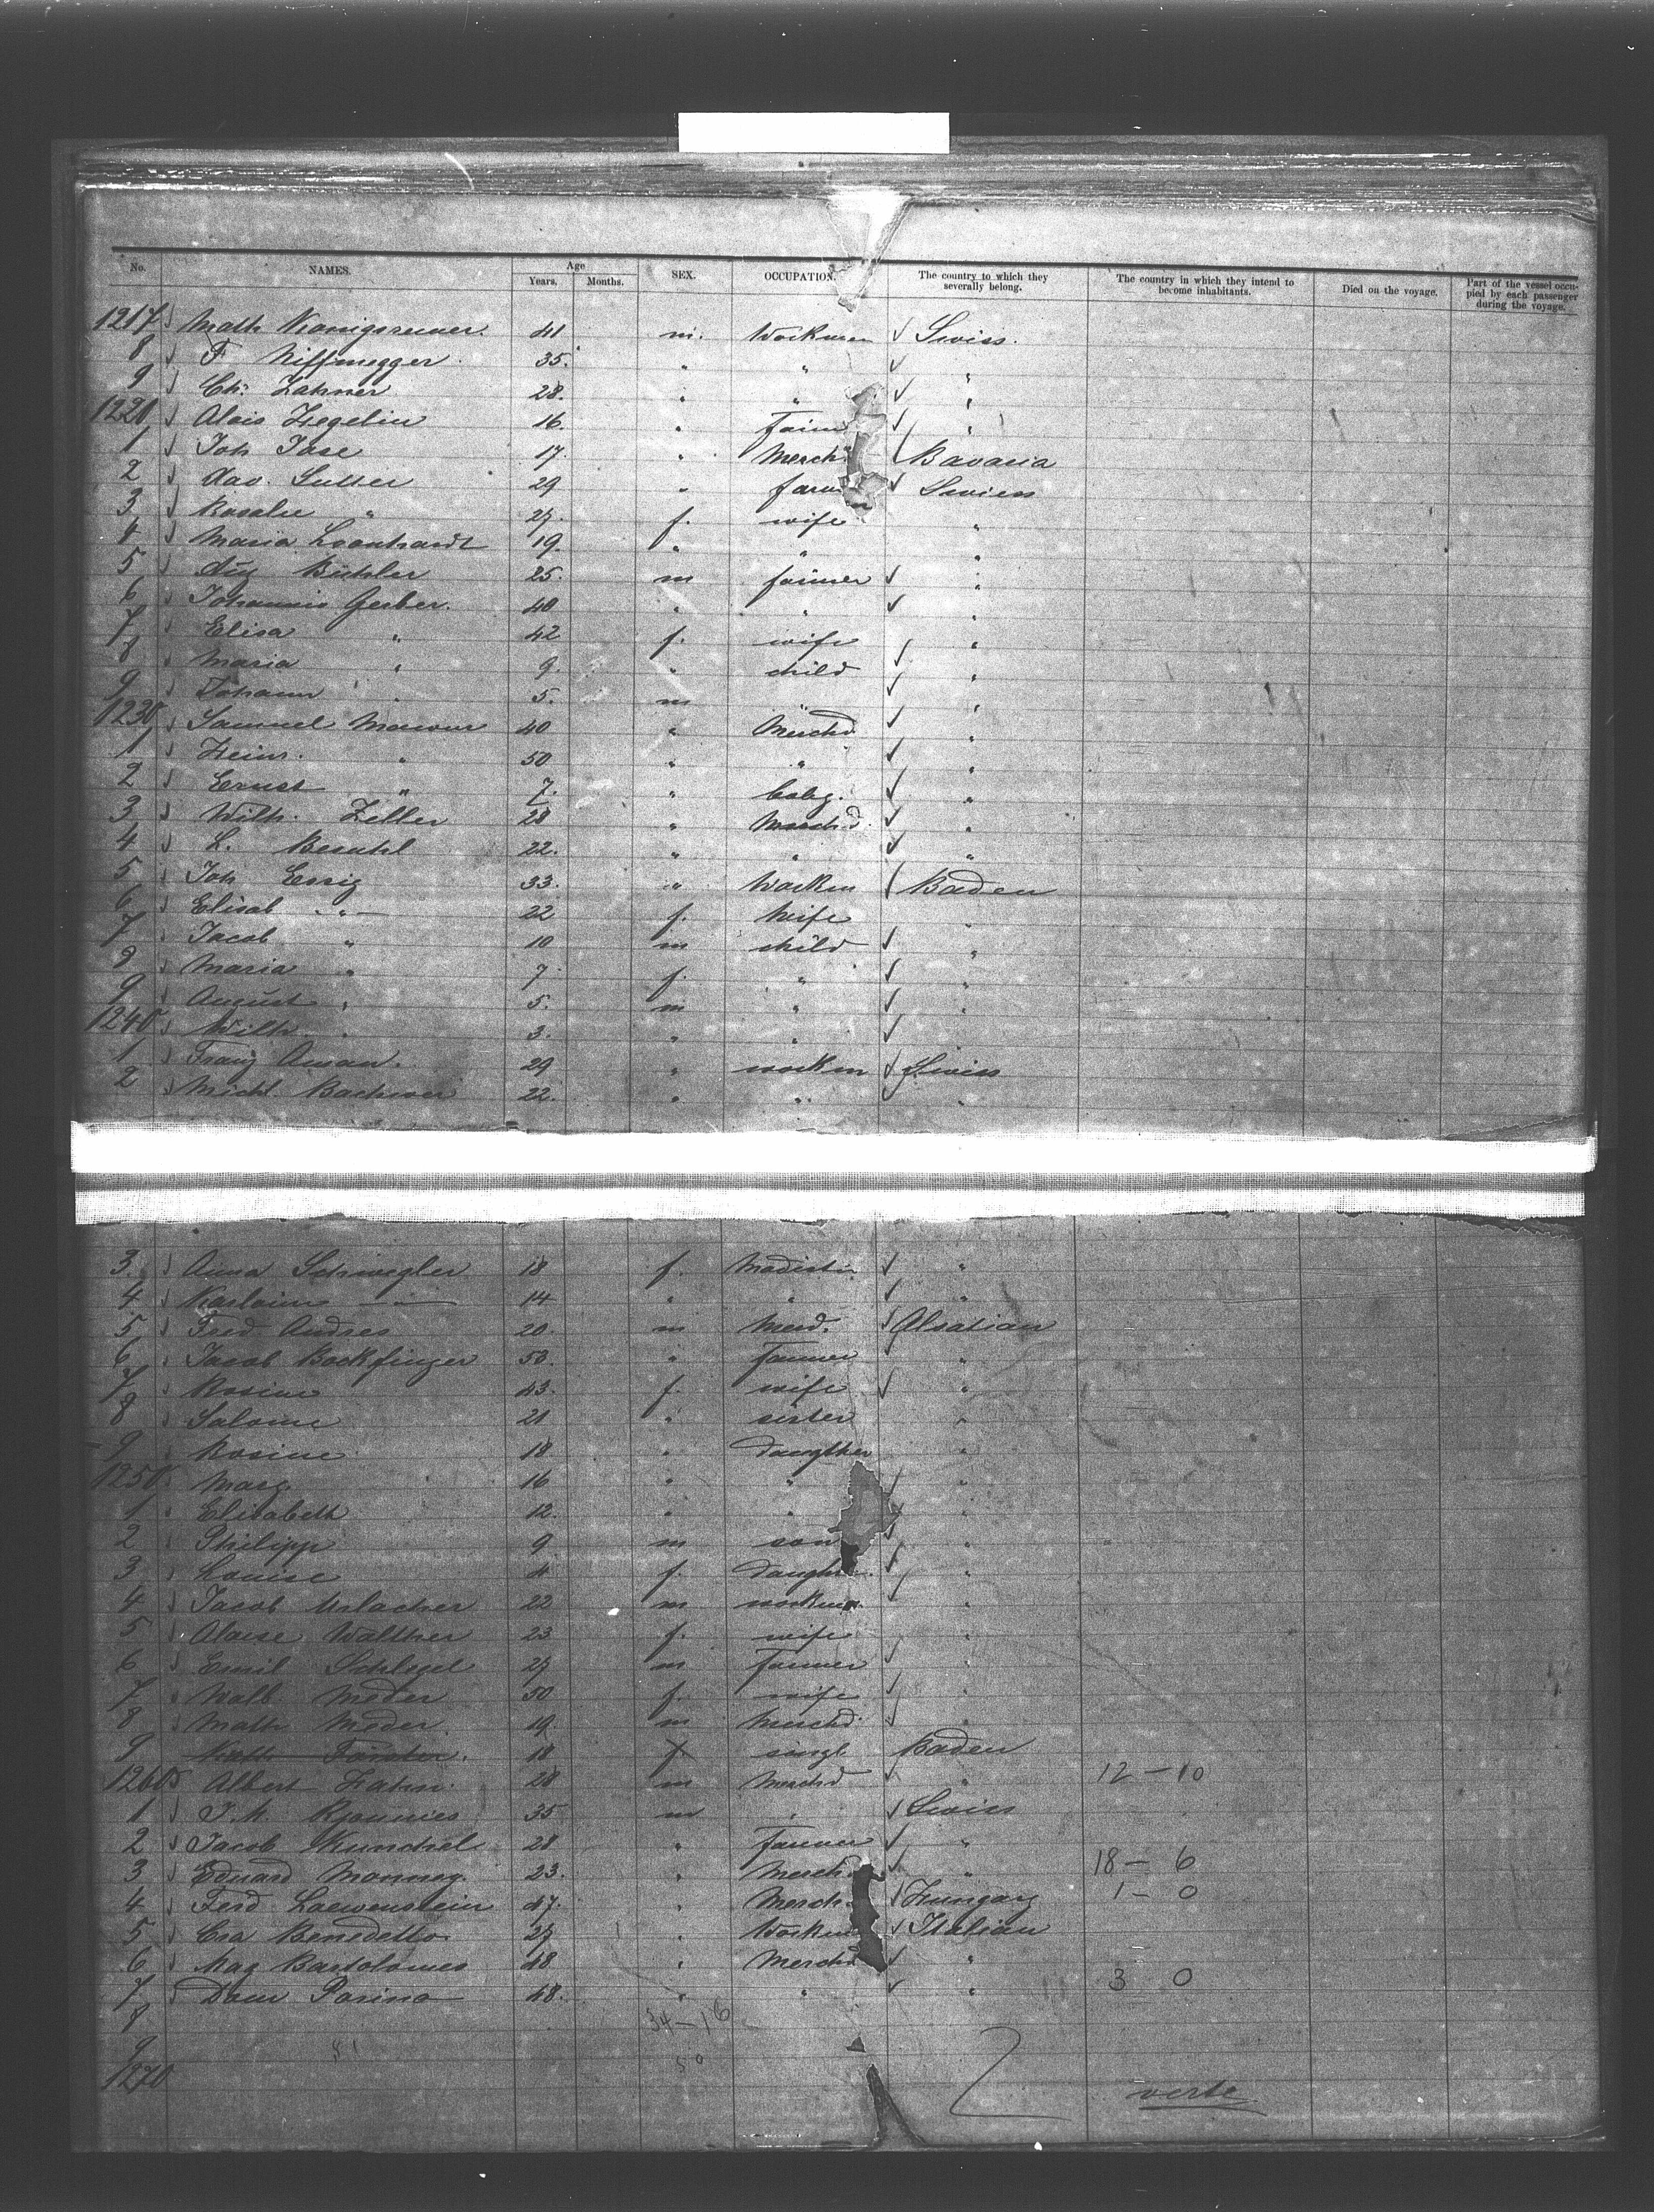 No. NAMES. Age Years. Months. SEX. OCCUPATION. The country to which they severally belong. The country in which they intend to become inhabitants. Died on the voyage. Part of the vessel occupied by each passenger during the voyage.
1217 Math 41 m. Workmen Swiss.
8 F Niffenegger 35. " " "
9 Ch: Zahner 28. " " "
1220 Alois Hegelin 16. " Farm "
1 Joh Jase 17. " Merch Bavaria
2 Xav. Sutter 29 " farm Swiss
3 Rosalie " 27. f. wife "
4 Maria Leonhardt 19. " " "
5 Aug Bühler 25. m farmer "
6 Johannis Gerber. 40 " " "
7 Elisa " 42 f. wife "
8 Maria " 9. " child "
9 Johann " 5. m " "
1230 Samuel 40 " Merchd "
1 Heinr. " 50 " " "
2 Ernst " 7. " baby. "
3 Wilh. Zeller 28 " Merchd. "
4 L. 22. " " "
5 Joh Essig 33. " Workm Baden
6 Elisab " 22 f. Wife "
7 Jacob " 10 m child "
8 Maria " 7. f. " "
9 August " 5. m " "
1240 Wilh " 3. " " "
1 Franz Aman. 29 " workm Swiss
2 Michl. 22. " " "
3 Anna Schwegler 18 f. Modistin "
4 " 14 " " "
5 Ferd Andres 20. m Merd. Alsatian
6 Jacob Bockfinger 50. " Farmer "
7 Rosine 43. f. wife "
8 Salome 21 " sister "
9 Rosine 18 " daugther "
1250 Marg. 16 " " "
1 Elisabeth 12. " " "
2 Philipp 9 m son "
3 Louise 4 f. daught "
4 Jacob Urlacher 22 m workm "
5 Aloise Walther 23 f. wife "
6 Emil Schlegel 27 m Farmer "
7 Walb. Meder 50 f. wife "
8 Math Meder. 19 m Merchd "
9 Kath Förster. 18 f singl Baden
1260 Albert Hahn. 28 m Merchd " 12 - 10
1 J. M. 35 m " Swiss
2 Jacob Kunchel 28 " Farmer "
3 Eduard 23. " Merch " 18 - 6
4 Ferd Loewenstein 47. " Merch Hungary 1 - 0
5 Benedetto 27 " Workm Italian
6 Mag Bartolomeo 48 " Merchd "
7 Dom Parino 48. " " " 3 0
8 34 - 16
9 50
1270 verte